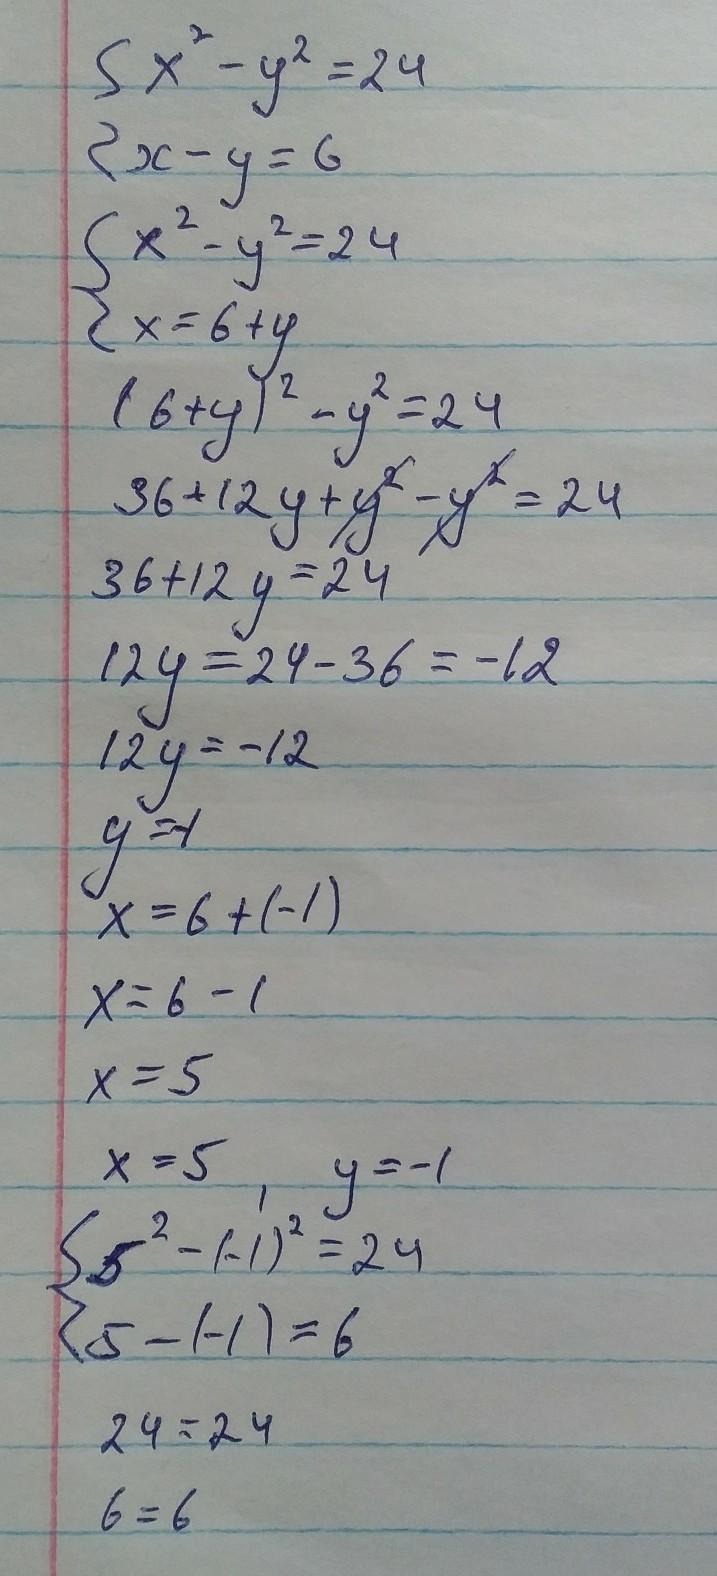 {x² - y² = 24
{x - y = 6
{x² - y² = 24
{x = 6 + y
(6 + y)² - y² = 24
36 + 12y + y² - y² = 24
36 + 12y = 24
12y = 24 - 36 = -12
12y = -12
y = -1
x = 6 + (-1)
x = 6 - 1
x = 5
x = 5 , y = -1
{5² - (-1)² = 24
{5 - (-1) = 6
24 = 24
6 = 6